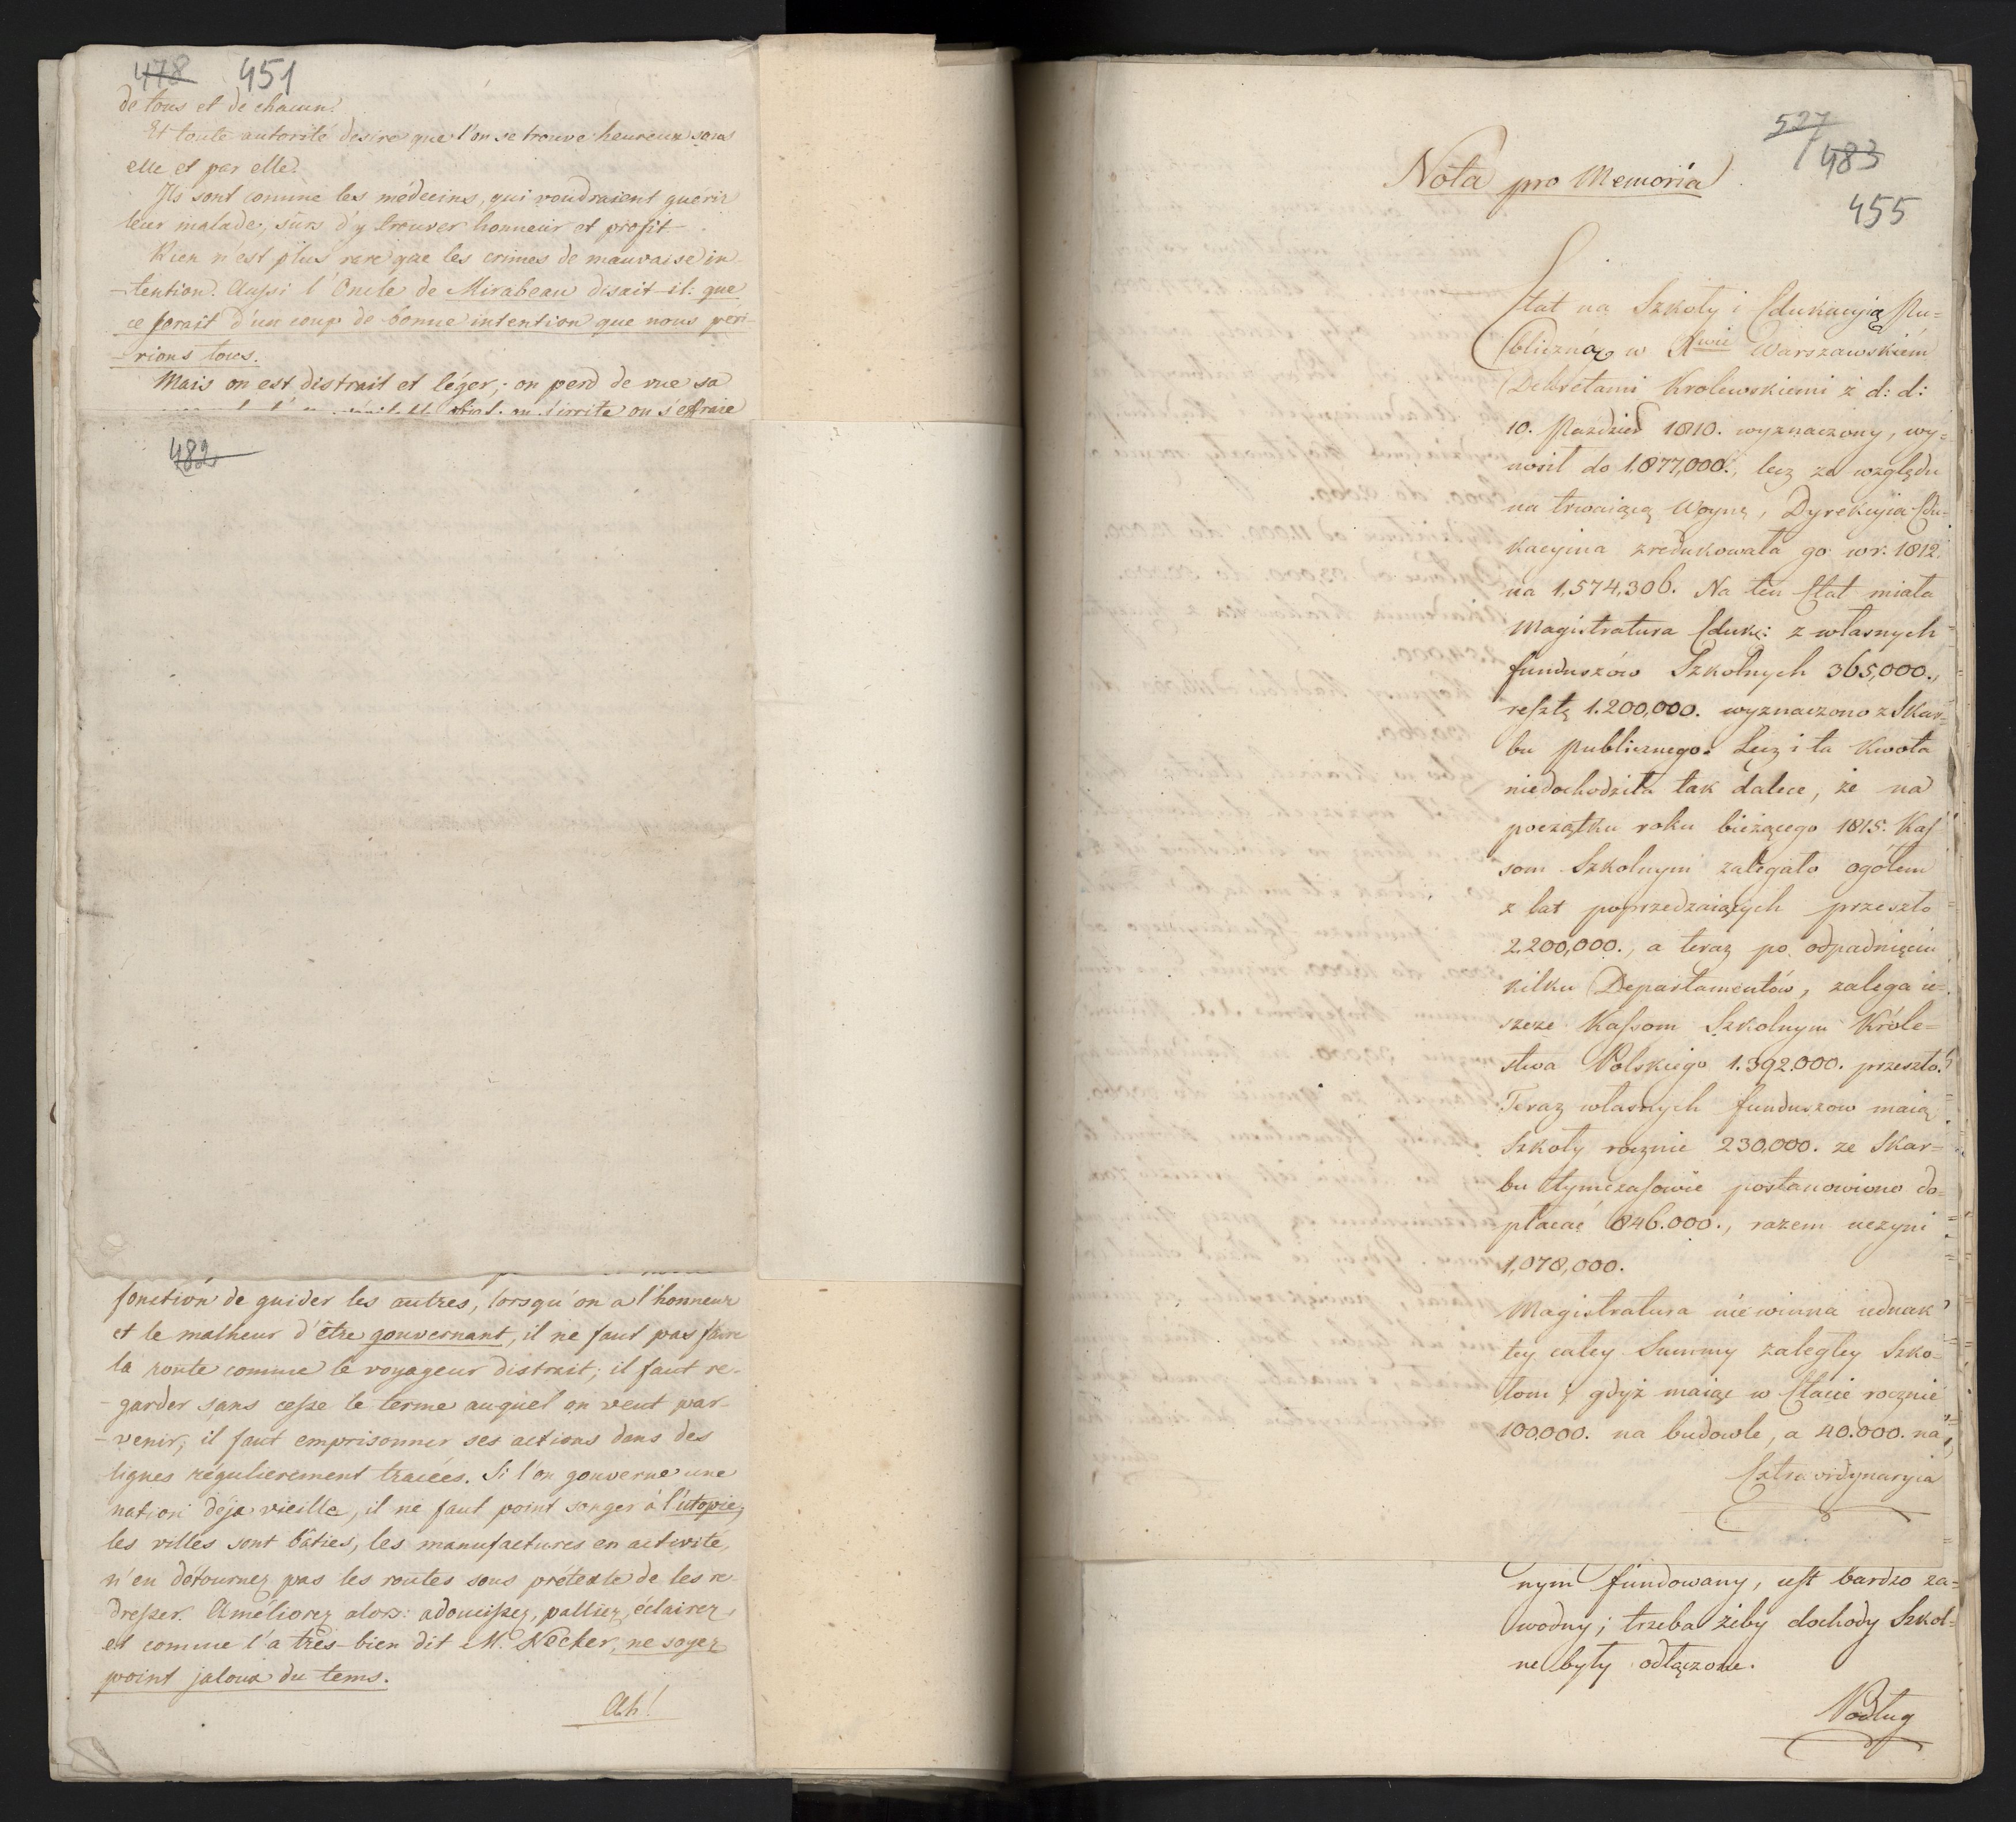 478 451
de tous et de chacun.
Et toute autorité desire que l'on se trouve heureux sous
elle et par elle.
Ils sont comme les médecins, qui voudraient guérir
leur malade, sûrs d'y trouver honneur et profit.
Rien n'est plus rare que les crimes de mauvaise in-
-tention. Aussi l'Oncle de Mirabeau disait-il: que
ce serait d'un coup de bonne intention que nous péri-
-rions tous.
Mais on est distrait et léger; on perd de vue sa
on s'irrite on s'effraie
482
fonction de guider les autres, lorsqu'on a l'honneur
et le malheur d'être gouvernant, il ne faut pas faire
la route comme le voyageur distrait; il faut re-
-garder sans cesse le terme auquel on veut par-
-venir; il faut emprisonner ses actions dans des
lignes régulierement tracées. Si l'on gouverne une
nation déja vieille, il ne faut point songer à l'utopie;
les villes sont bâties, les manufactures en activité,
n'en détournez pas les routes sous prétexte de les re-
dresser. Améliorez alors: adoucissez, palliez, éclairez,
et comme l'a très-bien dit M. Necker, ne soyez
point jaloux du tems.
Ah!
527
483
455
Nota pro Memoria
Etat na Szkoły i Edukacyią Pu=
bliczną w Xwie Warszawskiem
Dekretami Krolewskiemi z d: d:
10. Paździer 1810. wyznaczony, wy=
nosił do 1,877,000., lecz ze względu
na trwaiącą Woynę, Dyrekcyia Edu=
kacyina zredukowała go w r: 1812.
na 1,574,306. Na ten Etat miała
Magistratura Eduk: z własnych
funduszów Szkolnych 365,000.,
resztę 1.200,000. wyznaczono z Skar=
bu publicznego. Lecz i ta kwota
niedochodziła tak dalece, że na
początku roku bieżącego 1815. Kas
som Szkolnym zalegało ogółem
z lat poprzedzaiących przeszło
2.200,000., a teraz po odpadnięciu
kilku Departamentów, zalega ie=
szcze Kassom Szkolnym Króle=
stwa Polskiego 1.392.000. przeszło.
Teraz własnych funduszow maią
Szkoły rocznie 230,000. ze Skar=
bu tymczasowie postanowiono do=
płacać 846.000., razem uczyni
1,078,000.
Magistratura niewinna iednak
tey całey Summy zaległey Szko=
łom; gdyż maiąc w Etacie rocznie
100.000. na budowle, a 40.000. na
Extraordynaryia
nym fundowany, iest bardzo za=
wodny; trzeba żeby dochody Szkol=
ne były odłączone.
Podług